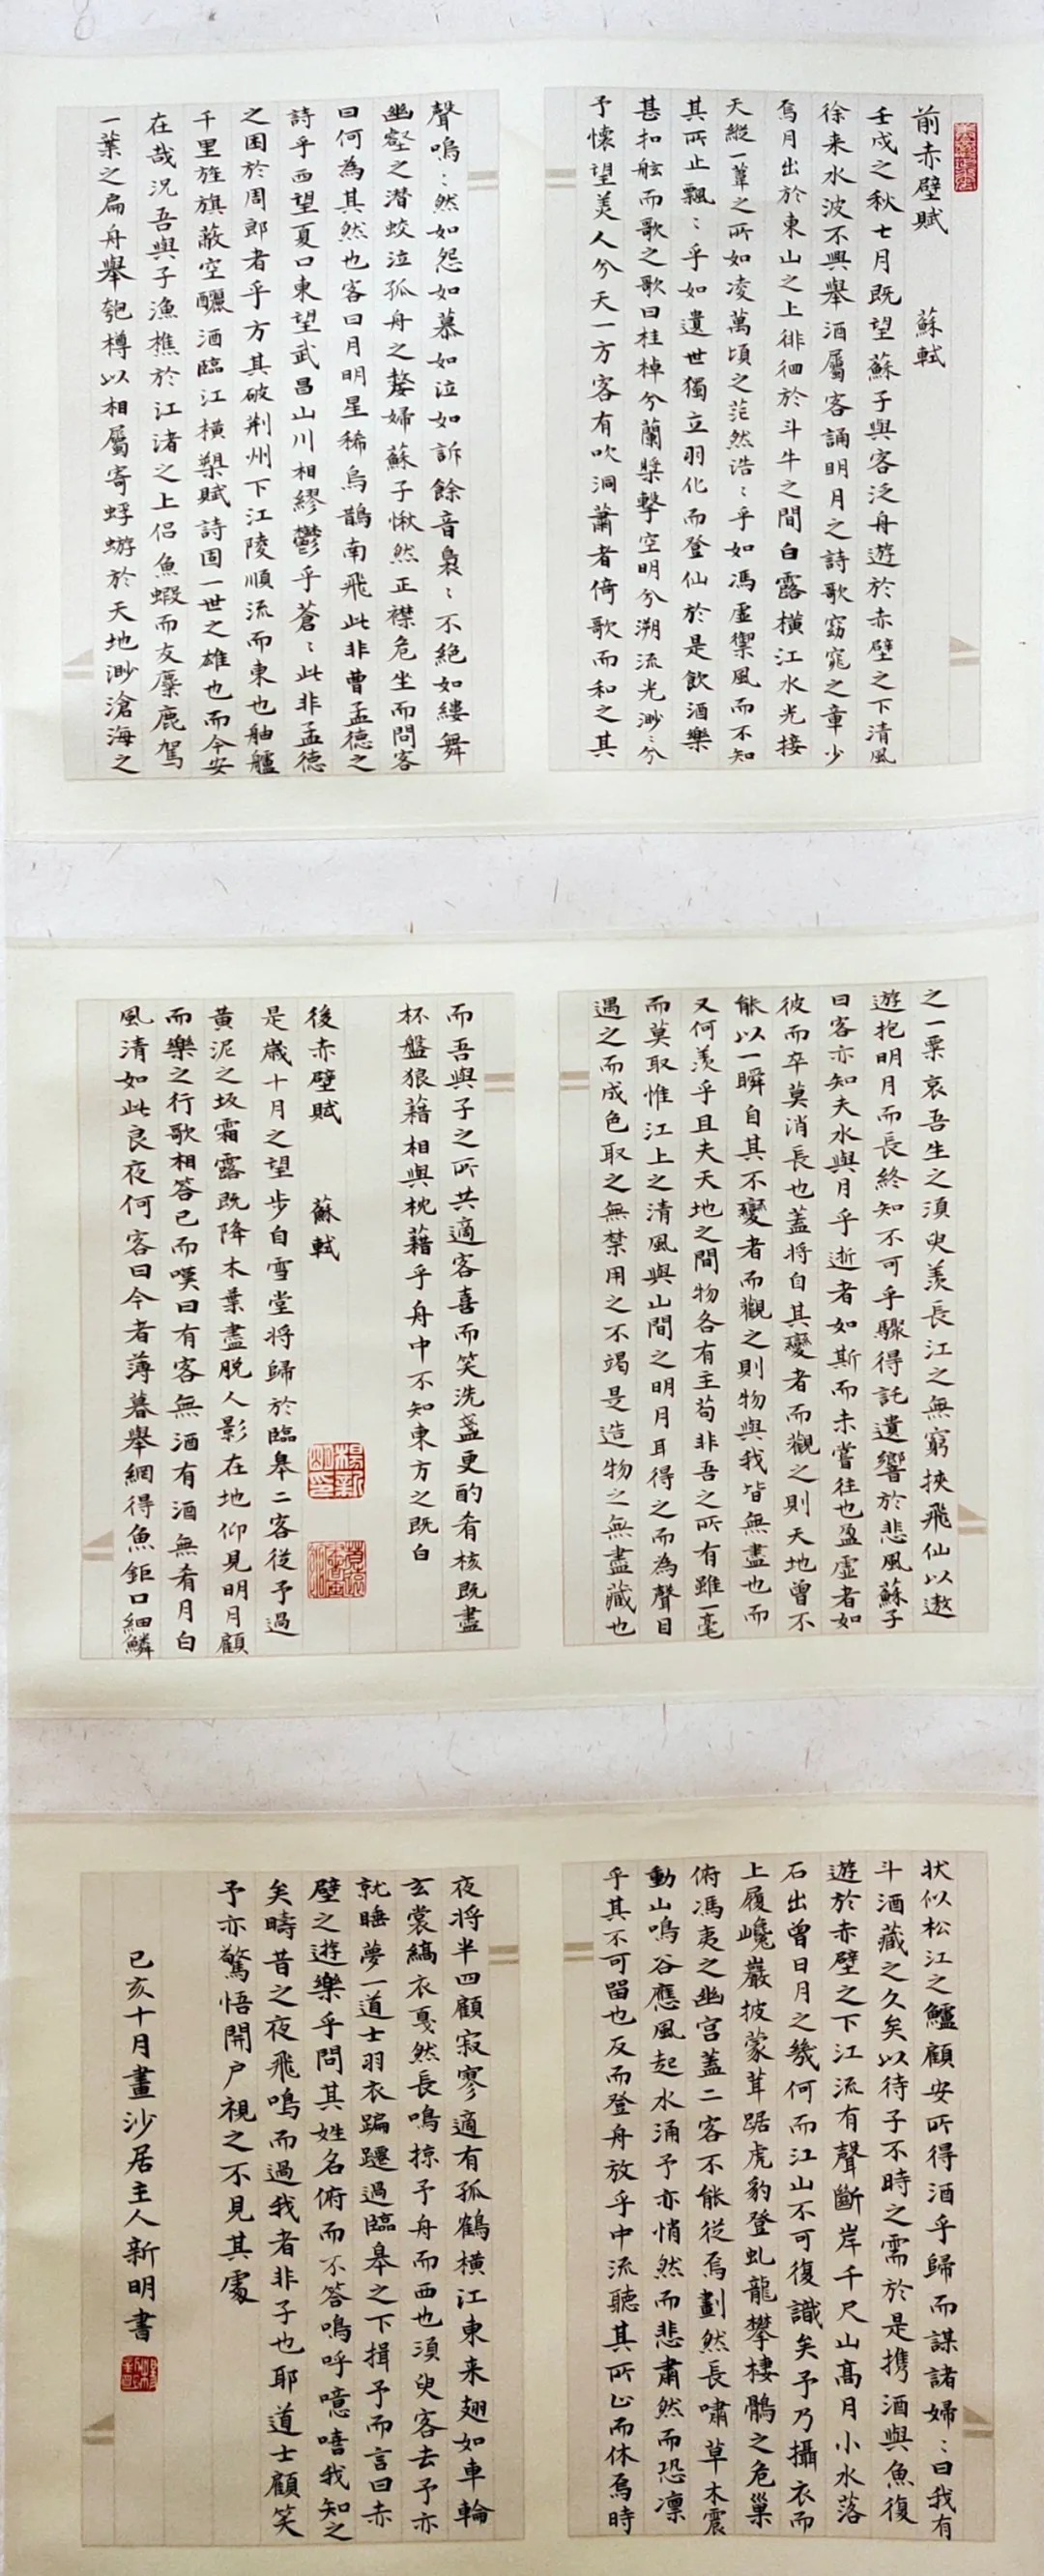 前赤壁賦 蘇軾
壬戌之秋七月既望蘇子與客泛舟遊於赤壁之下清風
徐来水波不興舉酒屬客誦明月之詩歌窈窕之章少
焉月出於東山之上徘徊於斗牛之間白露橫江水光接
天縱一葦之所如凌萬頃之茫然浩〻乎如馮虛禦風而不知
其所止飄〻乎如遺世獨立羽化而登仙於是飲酒樂
甚扣舷而歌之歌曰桂棹兮蘭槳擊空明兮溯流光渺〻兮
予懷望美人兮天一方客有吹洞蕭者倚歌而和之其
聲嗚〻然如怨如慕如泣如訴餘音裊〻不絕如縷舞
幽壑之潛蛟泣孤舟之嫠婦蘇子愀然正襟危坐而問客
曰何為其然也客曰月明星稀烏鵲南飛此非曹孟德之
詩乎西望夏口東望武昌山川相繆鬱乎蒼〻此非孟德
之困於周郎者乎方其破荊州下江陵順流而東也舳艫
千里旌旗蔽空釃酒臨江橫槊賦詩固一世之雄也而今安
在哉況吾與子漁樵於江渚之上侶魚蝦而友麋鹿駕
一葉之扁舟舉匏樽以相屬寄蜉蝣於天地渺滄海之
之一粟哀吾生之須臾羨長江之無窮挾飛仙以遨
遊抱明月而長終知不可乎驟得託遺響於悲風蘇子
曰客亦知夫水與月乎逝者如斯而未嘗往也盈虛者如
彼而卒莫消長也蓋將自其變者而觀之則天地曾不
能以一瞬自其不變者而觀之則物與我皆無盡也而
又何羨乎且夫天地之間物各有主苟非吾之所有雖一毫
而莫取惟江上之清風與山間之明月耳得之而為聲目
遇之而成色取之無禁用之不竭是造物之無盡藏也
而吾與子之所共適客喜而笑洗盞更酌肴核既盡
杯盤狼藉相與枕藉乎舟中不知東方之既白
後赤壁賦 蘇軾
楊新明印
是歲十月之望步自雪堂將歸於臨皋二客從予過
黃泥之坂霜露既降木葉盡脫人影在地仰見明月顧
而樂之行歌相答已而嘆曰有客無酒有酒無肴月白
風清如此良夜何客曰今者薄暮舉網得魚鉅口細鱗
狀似松江之鱸顧安所得酒乎歸而謀諸婦〻曰我有
斗酒藏之久矣以待子不時之需於是攜酒與魚復
遊於赤壁之下江流有聲斷岸千尺山高月小水落
石出曾日月之幾何而江山不可復識矣予乃攝衣而
上履巉巖披蒙茸踞虎豹登虬龍攀棲鶻之危巢
俯馮夷之幽宮蓋二客不能從焉劃然長嘯草木震
動山鳴谷應風起水涌予亦悄然而悲肅然而恐凜
乎其不可留也反而登舟放乎中流聽其所止而休焉時
夜將半四顧寂寥適有孤鶴橫江東来翅如車輪
玄裳縞衣戛然長鳴掠予舟而西也須臾客去予亦
就睡夢一道士羽衣蹁躚過臨皋之下揖予而言曰赤
壁之遊樂乎問其姓名俯而不答嗚呼噫嘻我知之
矣疇昔之夜飛鳴而過我者非子也耶道士顧笑
予亦驚悟開户視之不見其處
己亥十月畫沙居主人新明書